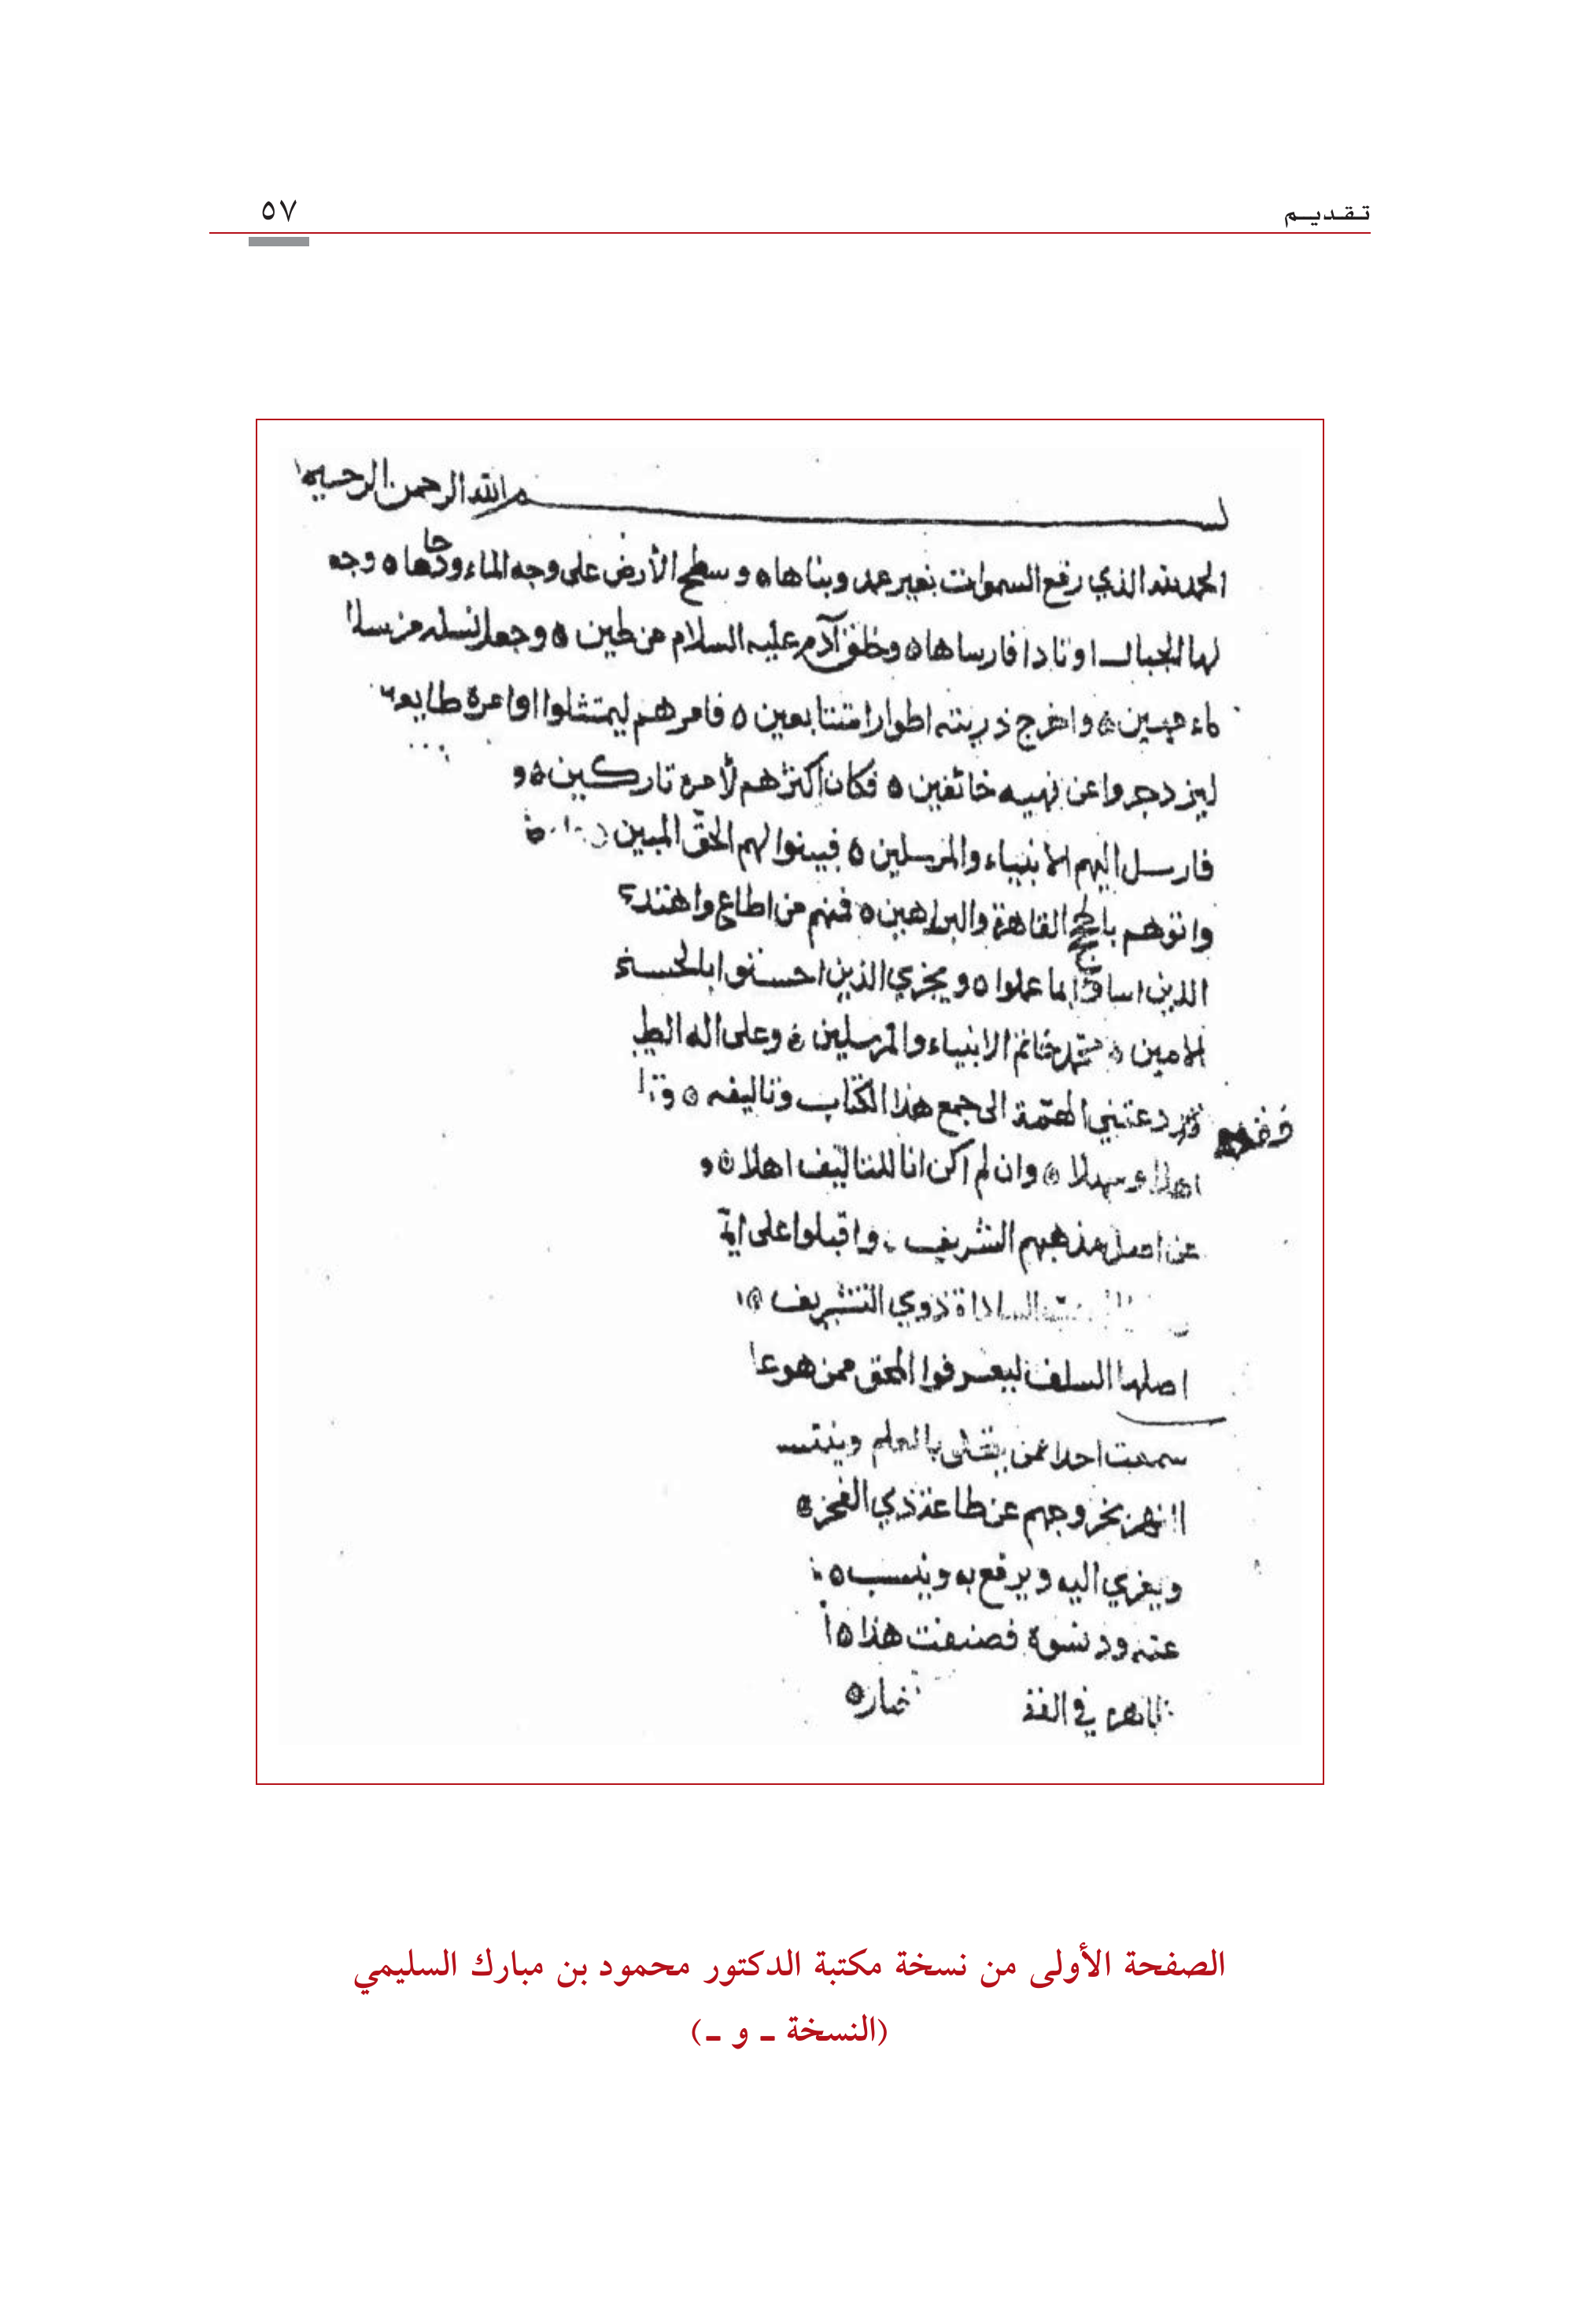 تقديم
٥٧
بسم الله الرحمن الرحيم
الحمد لله الذي رفع السموات بغير عمد وبناها ه وسطح الأرض على وجه الماء ودحاها ه وجه
لها الجبال اوتادا فارساها ه وخلق آدم عليه السلام من طين ه وجعل نسله من سلا
ماء مهين ه واخرج ذريته اطوارا متتابعين ه فامرهم ليمتثلوا اوامره طايع
ليزدجروا عن نهيه خائفين ه فكان اكثرهم لأمره تاركين ه و
فارسل اليهم الانبياء والمرسلين ه فبينوا لهم الحق المبين
واتوهم بالحجج القاهرة والبراهين ه فمنهم من اطاع واهتدى
الذين اساؤا بما عملوا ه ويجزي الذين احسنوا بالحسنى
الامين ه محمد خاتم الانبياء والمرسلين ه وعلى اله الطيب
فقد دعتني الهمّة الى جمع هذا الكتاب وتاليفه ه
اهلا وسهلا ه وان لم اكن انا للتاليف اهلا ه و
عن اصل مذهبهم الشريف واقبلوا على
الساداة ذوي التشريف ه
اصلها السلف ليعرفوا المحق ممن هو
سمعت احدا ممن بالعلم
بخروجهم عن طاعة ذي الفخر ه
ويعزي اليه ويرفع به وينسب ه
عنه ود نسوه فصنفت هذا ه
في الفقه
الصفحة الأولى من نسخة مكتبة الدكتور محمود بن مبارك السليمي
(النسخة ـ و ـ)